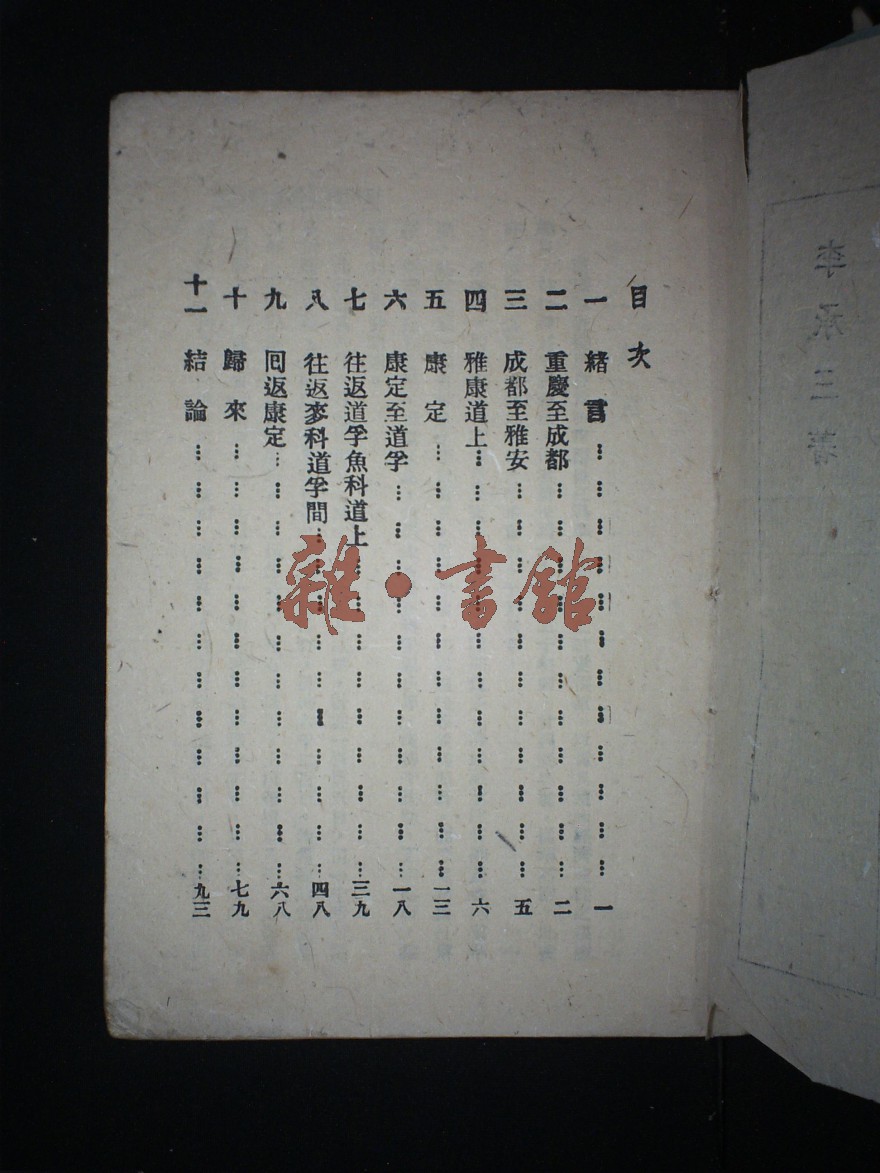 目次
一　緒言……一
二　重慶至成都……二
三　成都至雅安……五
四　雅康道上……六
五　康定……一三
六　康定至道孚……一八
七　往返道孚魚科道上……三九
八　往返麥科道孚間……四八
九　回返康定……六八
十　歸來……七九
十一　結論……九三
雜·書館
李承三著